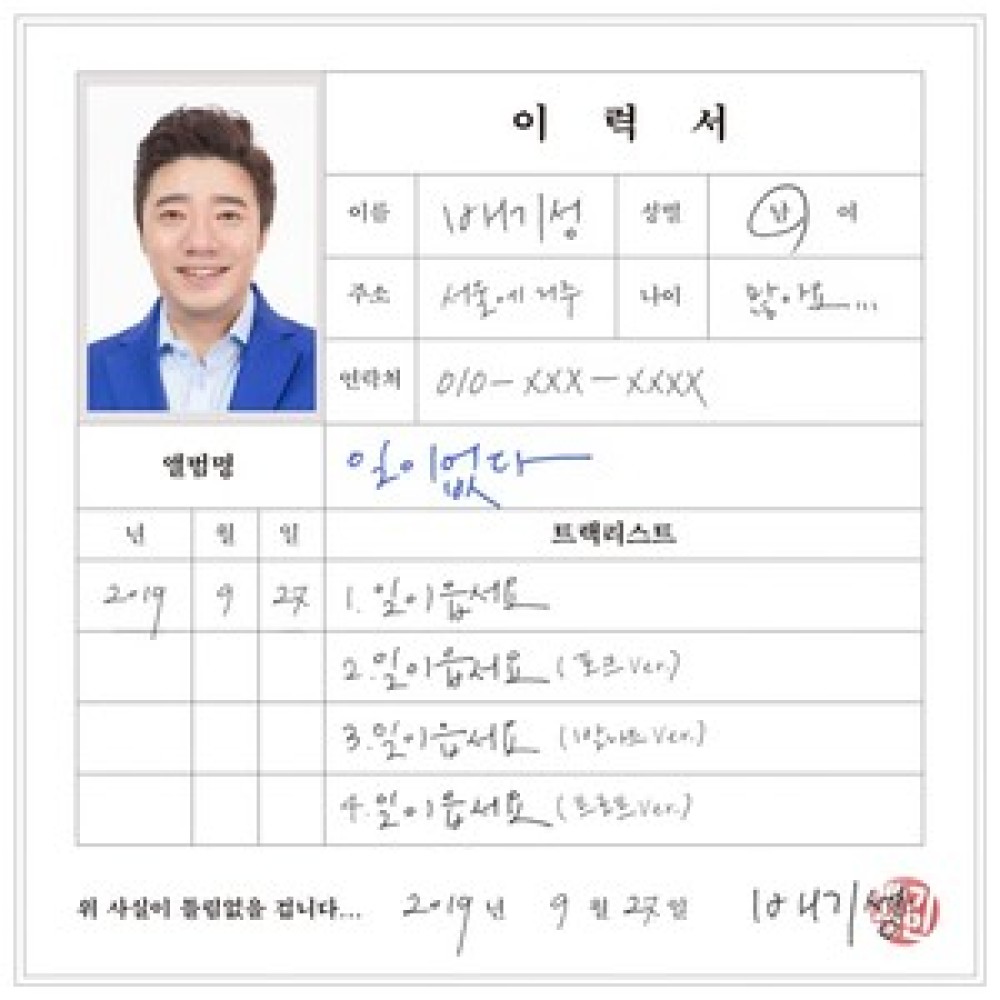 이 력 서
이름 배기성 성별 남 여
주소 서울에 거주 나이 많아요...
연락처 010-XXX-XXXX
앨범명 일이없다
년 월 일 트랙리스트
2019 9 27 1. 일이읍서요
2. 일이읍서요 (포크 Ver.)
3. 일이읍서요 (발라드 Ver.)
4. 일이읍서요 (트로트 Ver.)
위 사실이 틀림없을 겁니다... 2019년 9월 27일 배기성